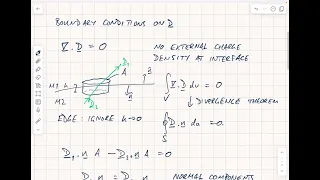 BOUNDARY CONDITIONS ON D
∇.D = 0 NO EXTERNAL CHARGE
DENSITY AT INTERFACE
D₁ A n
M1 h
M2 D₂ n
∮ ∇.D dv = 0
↓ DIVERGENCE THEOREM
EDGE: IGNORE h→0
∮ D.n da = 0
S
D₁.n A − D₂.n A = 0
D₁.n = D₂.n NORMAL COMPONENTS